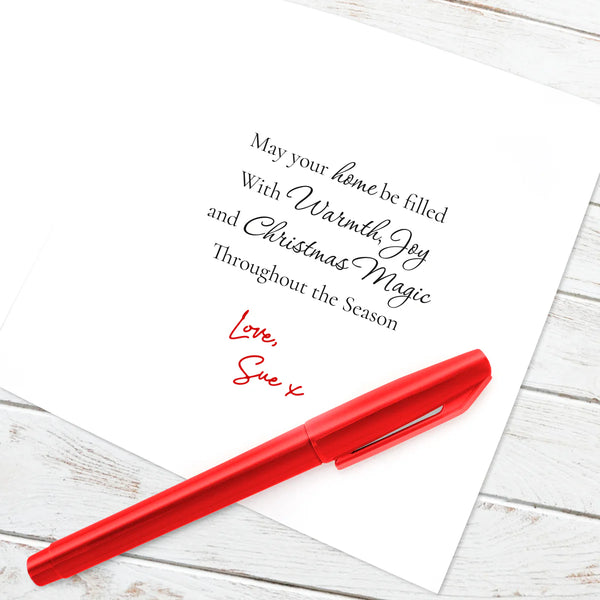 May your home be filled
With Warmth, Joy
and Christmas Magic
Throughout the Season
Love,
Sue x